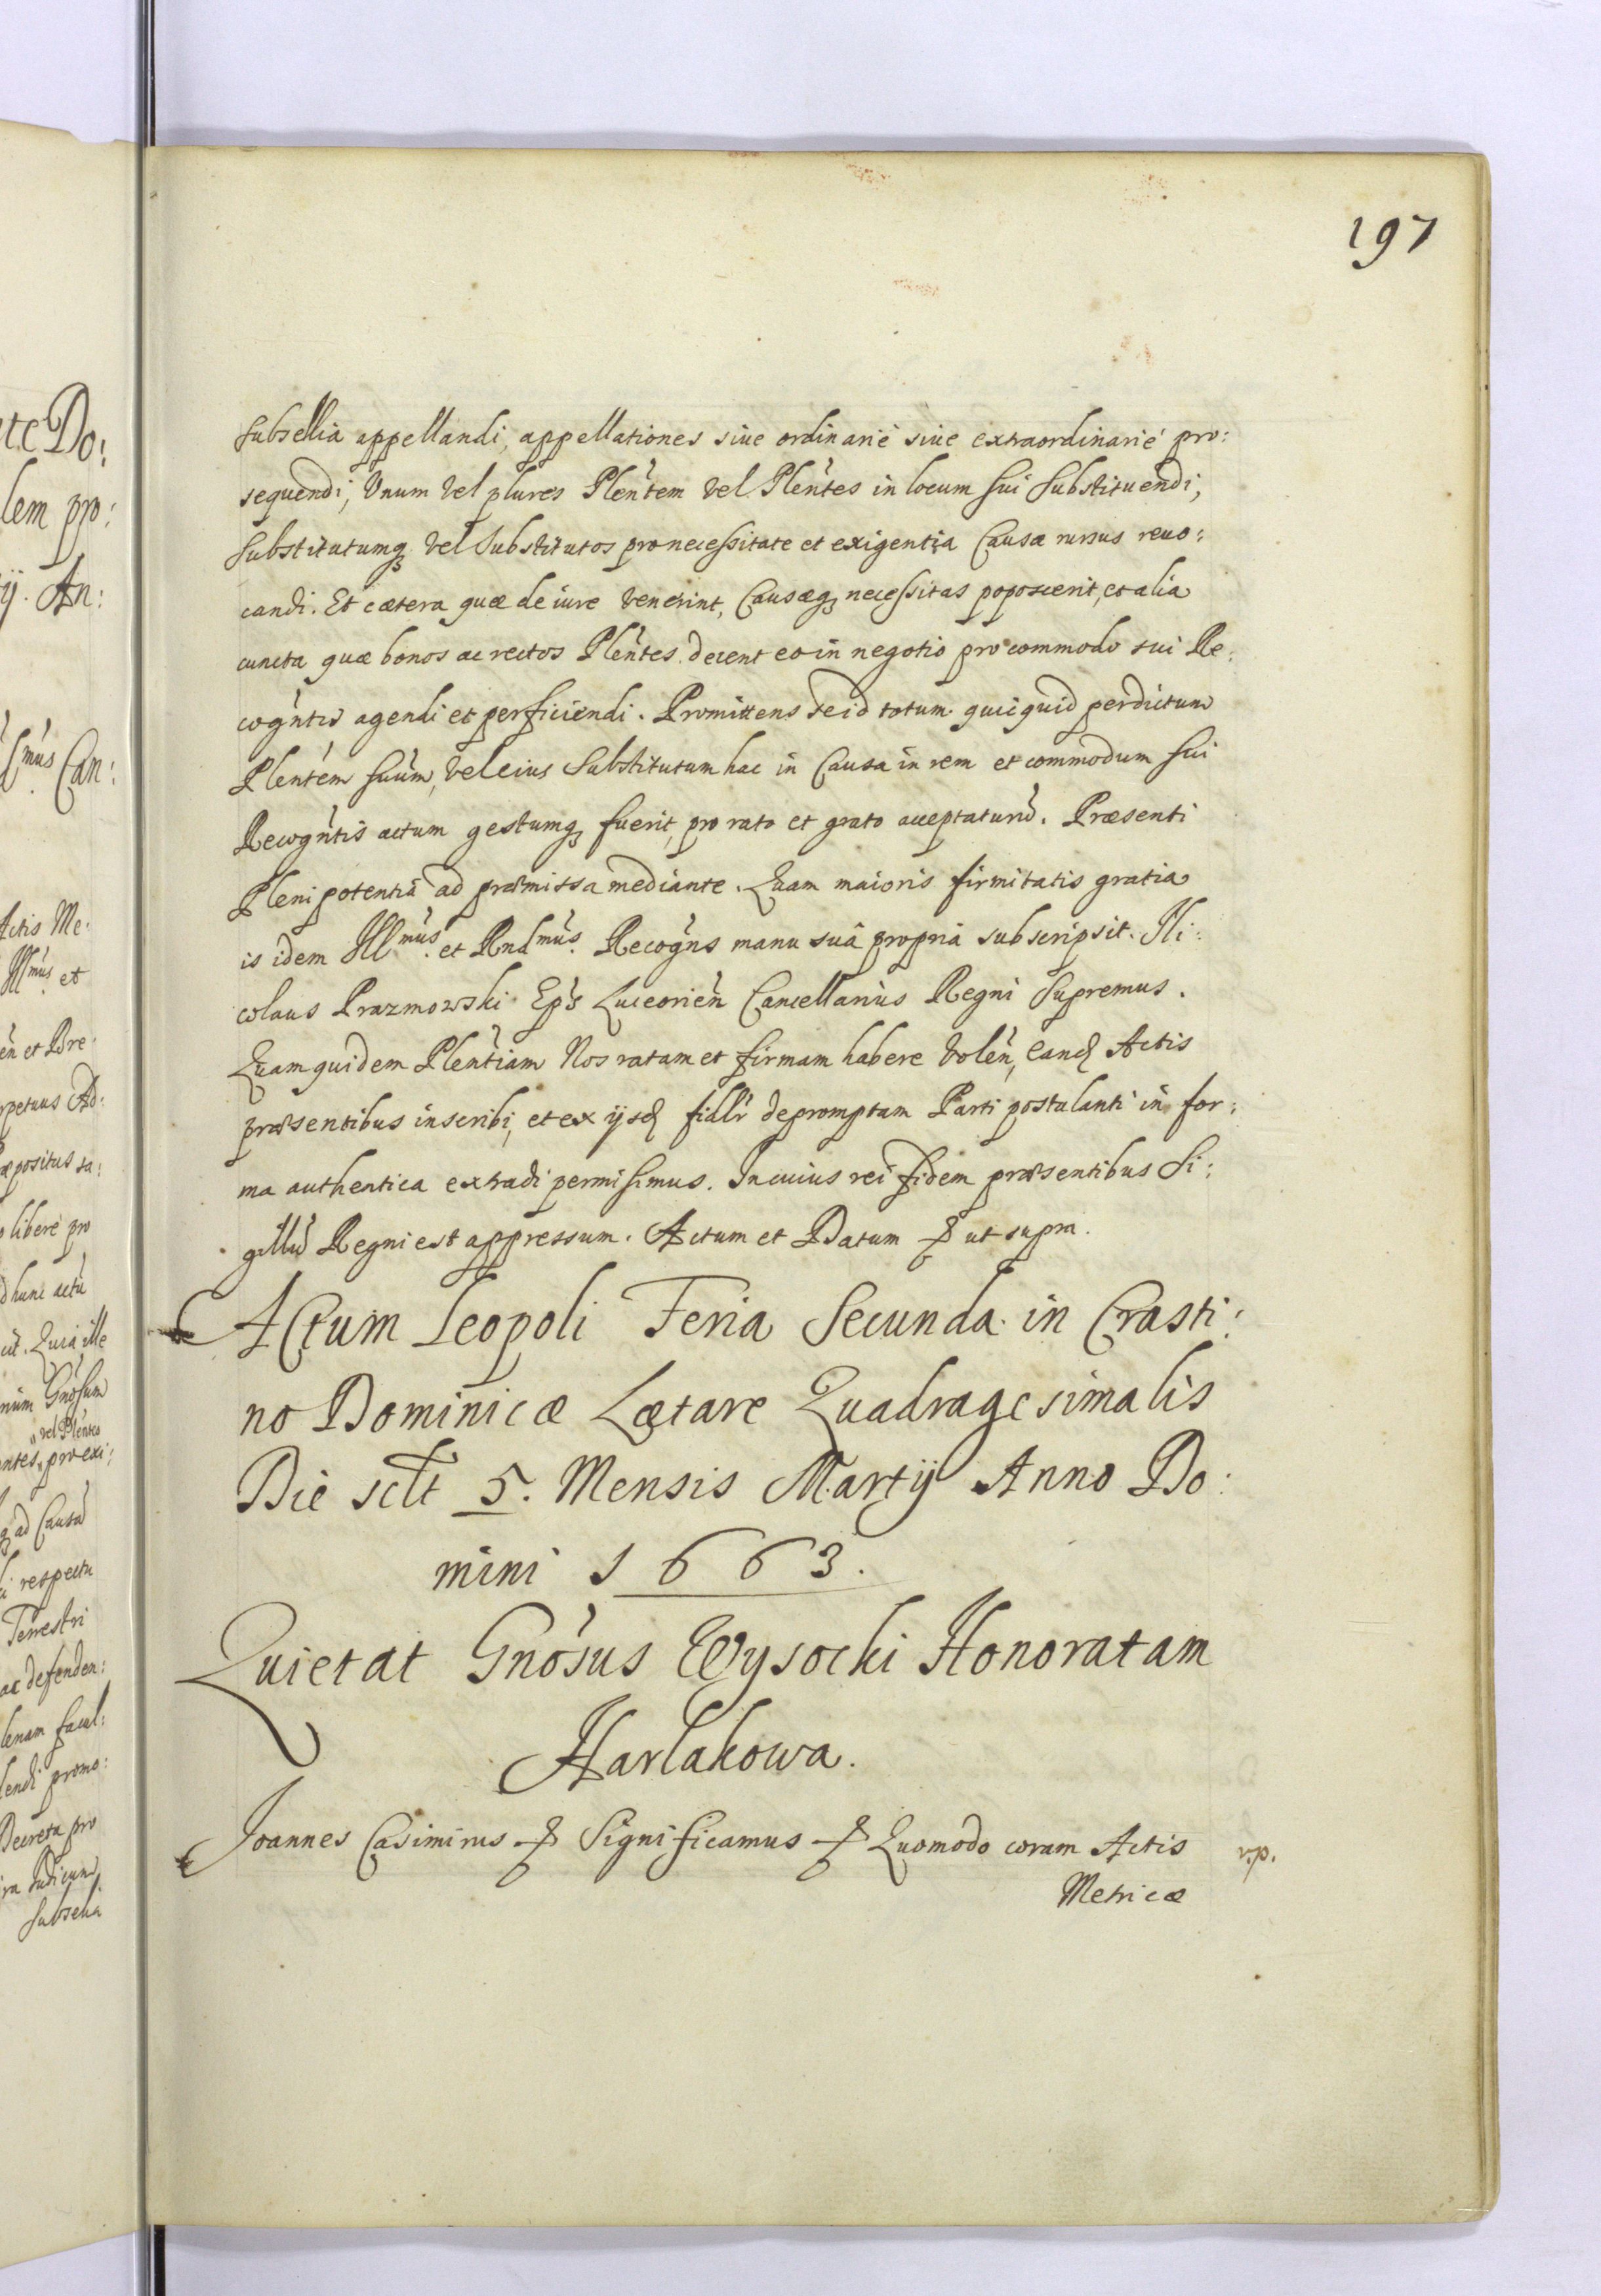 197
subsellia appellandi, appellationes siue ordinariè siue extraordinariè pro:
sequendi, Unum vel plures Plen̄tem vel Plen̄tes in locum sui substituendi,
substitutumq̃ vel substitutos pro necessitate et exigentia Causæ rursus reuo:
candi. Et cætera quæ de iure venerint, Causæq̃ necessitas poposcerit, et alia
cuncta quæ bonos ac rectos Plen̄tes decent eo in negotio pro commodo sui Re:
cogn̄tis agendi et perficiendi. Promittens se id totum quicquid per dictum
Plen̄tem suum, vel eius substitutum hac in Causa in rem et commodum sui
Recogn̄tis actum gestumq̃ fuerit, pro rato et grato acceptaturū. Præsenti
Plenipotentiâ ad præmissa mediante. Quam maioris firmitatis gratia
is idem Illmus. et Rndmus. Recogn̄s manu suâ propriâ subscripsit. Ni:
colaus Prazmowski Ep̄s Luceorien̄ Cancellarius Regni Supremus.
Quam quidem Plen̄tiam Nos ratam et firmam habere volen̄, eand̃ Actis
præsentibus inscribi, et ex ijsd̃ fidlr̄ depromptam Parti postulanti in for:
ma authentica extradi permisimus. In cuius rei fidem præsentibus Si:
gillū Regni est appressum. Actum et Datum ꝑ ut supra.
Actum Leopoli Feria Secunda in Crasti:
no Dominicæ Lætare Quadragesimalis
Die sclt 5. Mensis Martij Anno Do:
mini 1663.
Quietat Gnōsus Wysocki Honoratam
Harlakowa.
Joannes Casimirus ꝑ Significamus ꝑ Quomodo coram Actis r.p.
Metricæ